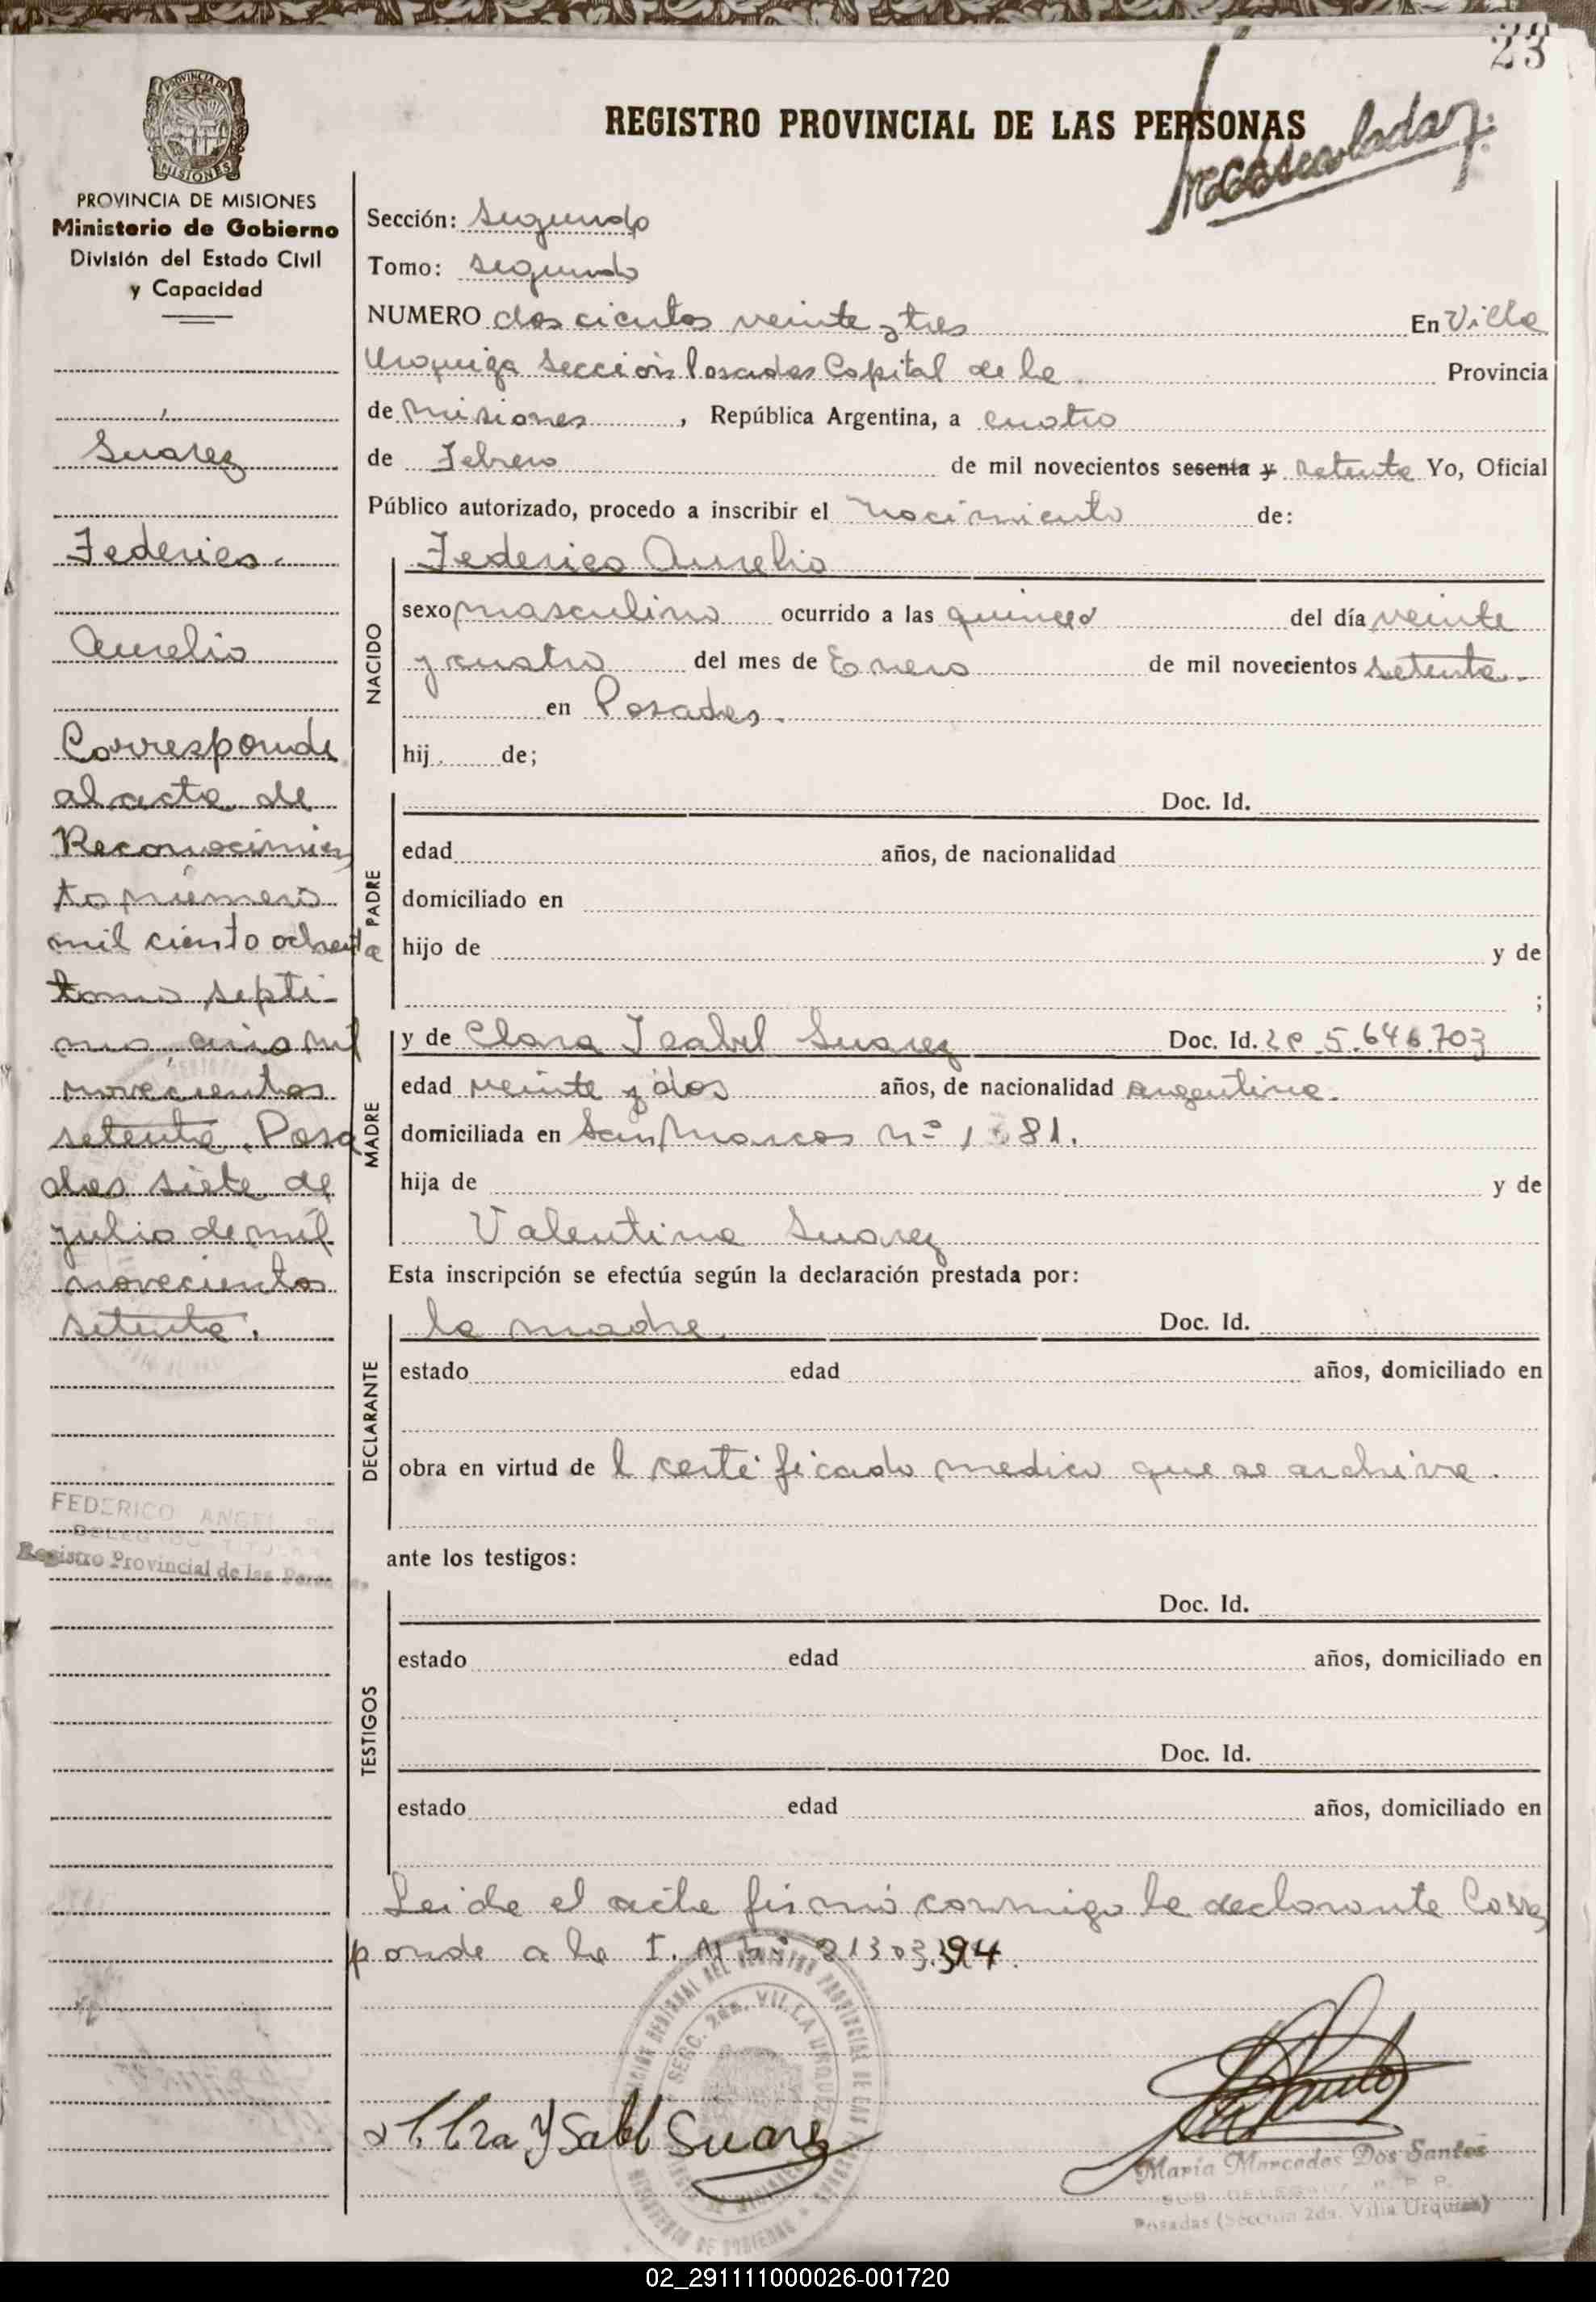 23
REGISTRO PROVINCIAL DE LAS PERSONAS
PROVINCIA DE MISIONES
Ministerio de Gobierno
División del Estado Civil
y Capacidad
Suarez
Federico
Aurelio
Corresponde
al acta de
Reconocimien
to número
mil ciento ochenta
tomo septi-
mo, año mil
novecientos
setenta. Posa
das siete de
julio de mil
novecientos
setenta.
FEDERICO ANGEL
DELEGADO TITULAR
Registro Provincial de las Personas
Sección: Segundo
Tomo: segundo
NUMERO doscientos veinte y tres En Villa
Urquiza Sección Posadas Capital de la Provincia
de Misiones, República Argentina, a cuatro
de Febrero de mil novecientos sesenta y setenta Yo, Oficial
Público autorizado, procedo a inscribir el nacimiento de:
NACIDO
Federico Aurelio
sexo masculino ocurrido a las quince del día veinte
y cuatro del mes de Enero de mil novecientos setenta.
en Posadas.
hij de;
PADRE
Doc. Id.
edad años, de nacionalidad
domiciliado en
hijo de y de
;
MADRE
y de Clara Isabel Suarez Doc. Id. LC 5.646.703
edad veinte y dos años, de nacionalidad argentina.
domiciliada en San Marcos nº 81.
hija de y de
Valentina Suarez
Esta inscripción se efectúa según la declaración prestada por:
DECLARANTE
la madre Doc. Id.
estado edad años, domiciliado en
obra en virtud de l certificado medico que se archiva.
ante los testigos:
TESTIGOS
Doc. Id.
estado edad años, domiciliado en
Doc. Id.
estado edad años, domiciliado en
Leida el acta firmó conmigo la declarante Corres
ponde a la
Ysabel Suarez
SECC. 2da. VILLA URQUIZA
MINISTERIO DE GOBIERNO
María Mercedes Dos Santos
SUB DELEGADA R. P. P.
Posadas (Sección 2da. Villa Urquiza)
02_291111000026-001720